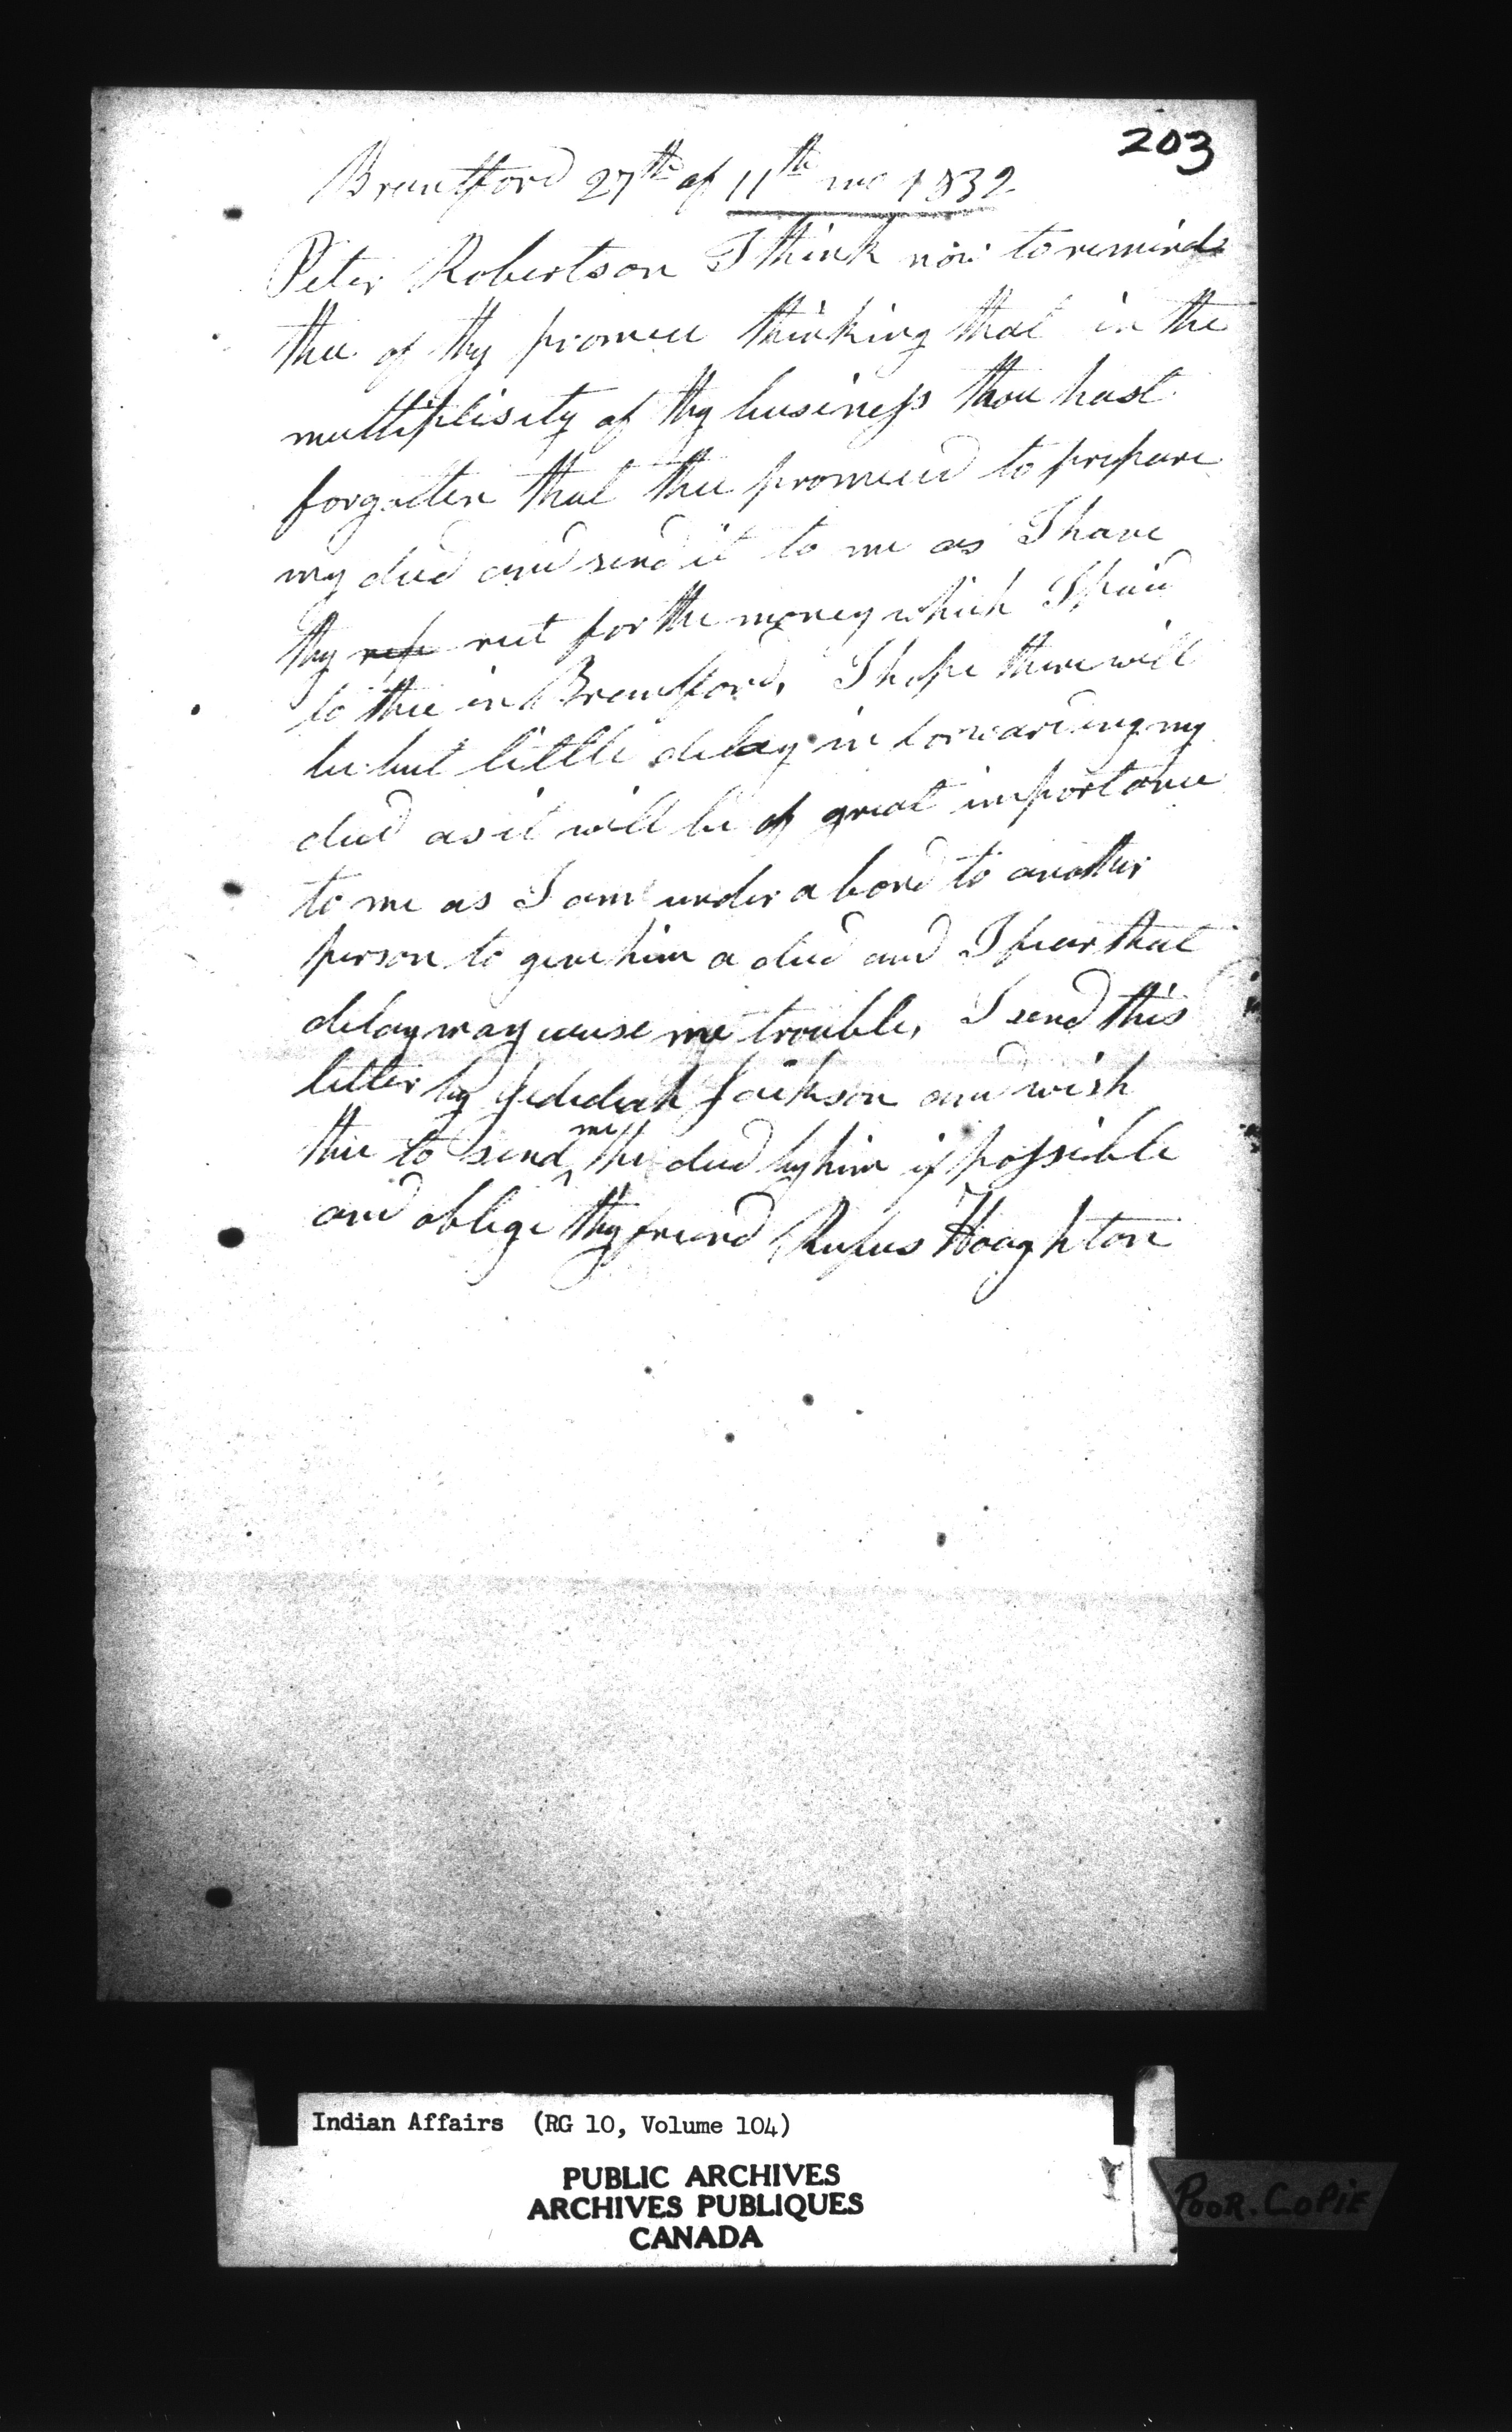 203
Brantford 27th of 11th mo 1832
Peter Robertson I think now to remind
thee of thy promise thinking that in the
multiplisity of thy business thou hast
forgotten that thee promised to prepare
my deed and send it to me as I have
thy rect for the money which I paid
to thee in Brantford, I hope there will
be but little delay in forwarding my
deed as it will be of great importance
to me as I am under a bond to another
person to give him a deed and I fear that
delay may cause me trouble, I send this
letter by Jedediah Jackson and wish
thee to send me the deed by him if possible
and oblige thy friend Rufus Hoaghton
Indian Affairs (RG 10, Volume 104)
PUBLIC ARCHIVES
ARCHIVES PUBLIQUES
CANADA
POOR. COPIE